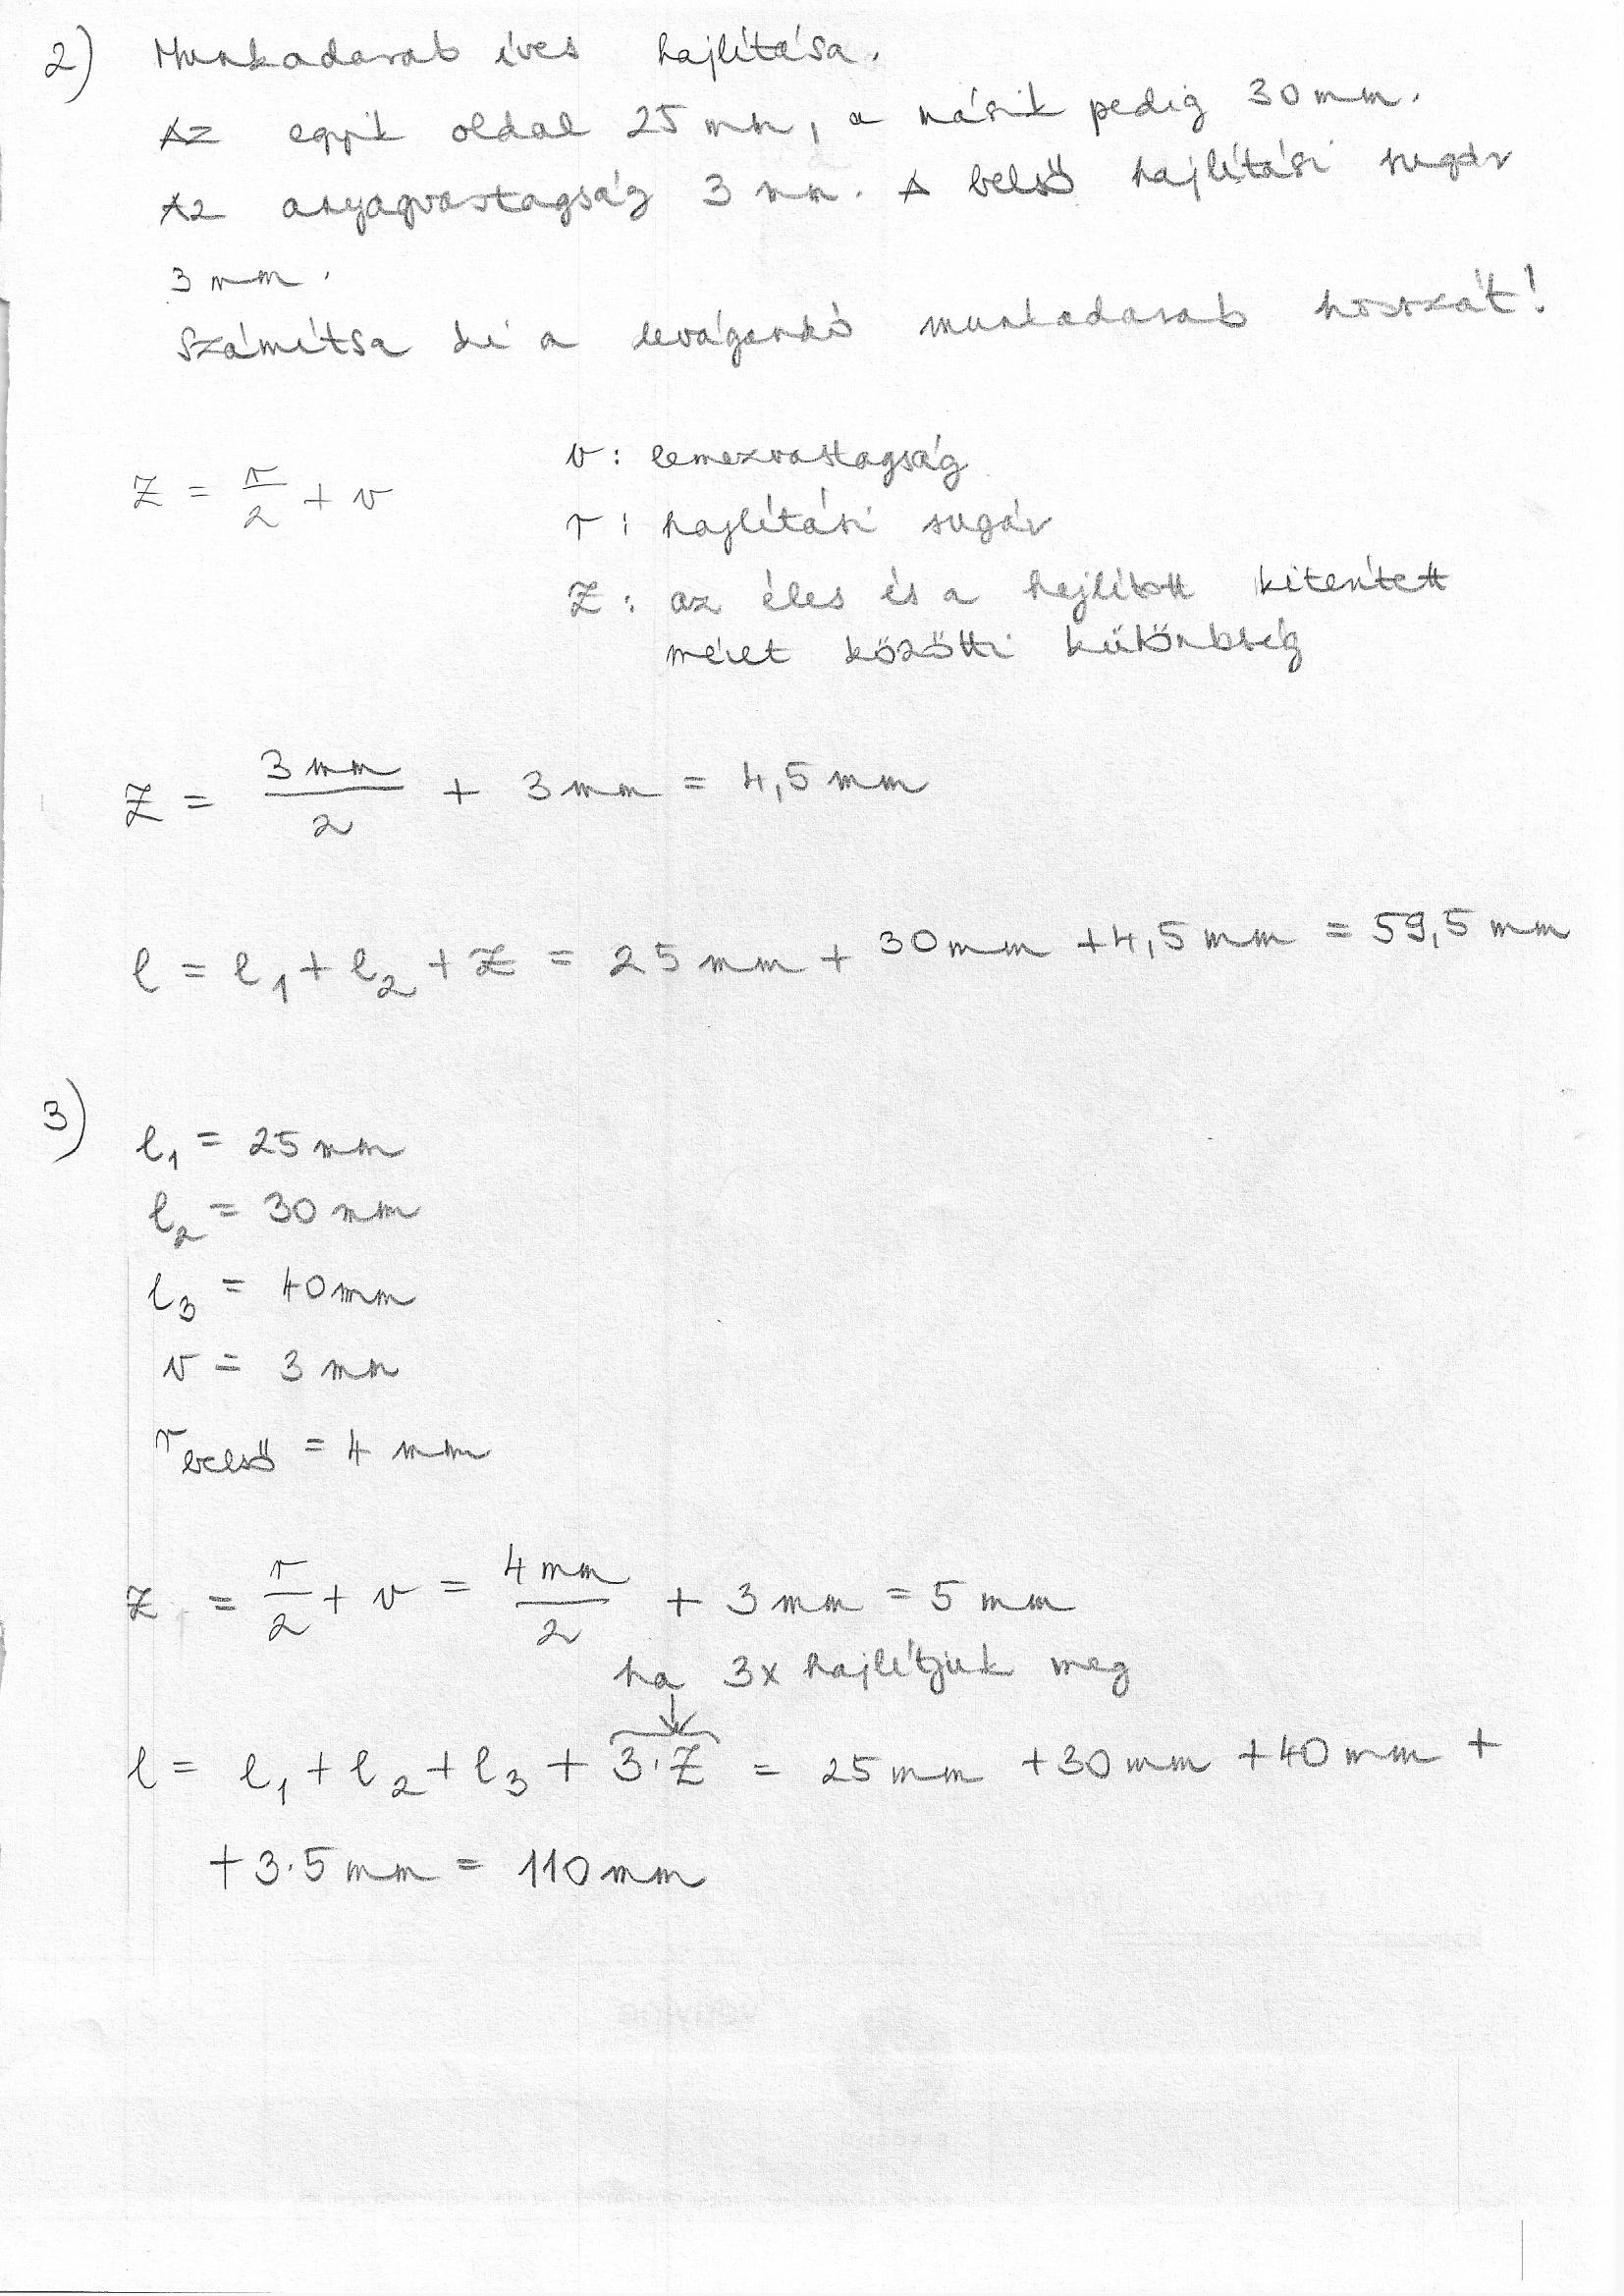 2) Munkadarab íves hajlítása.
Az egyik oldal 25 mm, a másik pedig 30 mm.
Az anyagvastagság 3 mm. A belső hajlítási sugár
3 mm.
Számítsa ki a levágandó munkadarab hosszát!
Z = r/2 + v
v: lemezvastagság
r: hajlítási sugár
Z: az éles és a hajlított kiterített
méret közötti különbség
Z = 3 mm/2 + 3 mm = 4,5 mm
l = l1 + l2 + Z = 25 mm + 30 mm + 4,5 mm = 59,5 mm
3) l1 = 25 mm
l2 = 30 mm
l3 = 40 mm
v = 3 mm
r belső = 4 mm
Z = r/2 + v = 4 mm/2 + 3 mm = 5 mm
ha 3x hajlítjuk meg
↓
l = l1 + l2 + l3 + 3·Z = 25 mm + 30 mm + 40 mm +
+ 3·5 mm = 110 mm